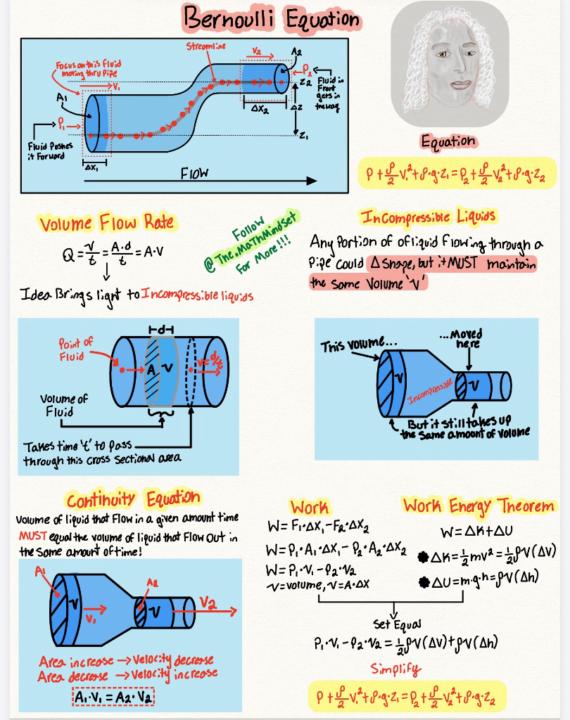 Bernoulli Equation
Focus on this Fluid
moving thru Pipe
Streamline
V₁
V₂
A₂
A₁
P₂
P₁
Fluid in
Front
gets in
the way
Z₂
ΔZ
Z₁
ΔX₂
Fluid Pushes
it Forward
ΔX₁
FLOW
Equation
P + ρ/2 V₁² + ρ·g·Z₁ = P₂ + ρ/2 V₂² + ρ·g·Z₂
Volume Flow Rate
Q = V/t = A·d/t = A·V
Idea Brings light to Incompressible liquids
Follow
@The.MathMindset
For More!!!
Incompressible Liquids
Any Portion of of liquid flowing through a
Pipe could Δ shape, but it MUST maintain
the same Volume "V"
Point of
Fluid
d
A
V
Volume of
Fluid
Takes time 't' to pass
through this cross sectional area
This volume...
...Moved
here
V
Incompressible
V
But it still takes up
the same amount of volume
Continuity Equation
Volume of liquid that Flow in a given amount time
MUST equal the volume of liquid that Flow Out in
the Same amount of time!
A₁
A₂
V
V₁
V
V₂
Area increase → Velocity decrease
Area decrease → Velocity increase
A₁·V₁ = A₂·V₂
Work
W = F₁·ΔX₁ - F₂·ΔX₂
W = P₁·A₁·ΔX₁ - P₂·A₂·ΔX₂
W = P₁·V₁ - P₂·V₂
V = volume, V = A·ΔX
Work Energy Theorem
W = ΔK + ΔU
ΔK = ½mv² = ½ρV(ΔV)
ΔU = m·g·h = ρV(Δh)
Set Equal
P₁·V₁ - P₂·V₂ = ½ρV(ΔV) + ρV(Δh)
Simplify
P + ρ/2 V₁² + ρ·g·Z₁ = P₂ + ρ/2 V₂² + ρ·g·Z₂